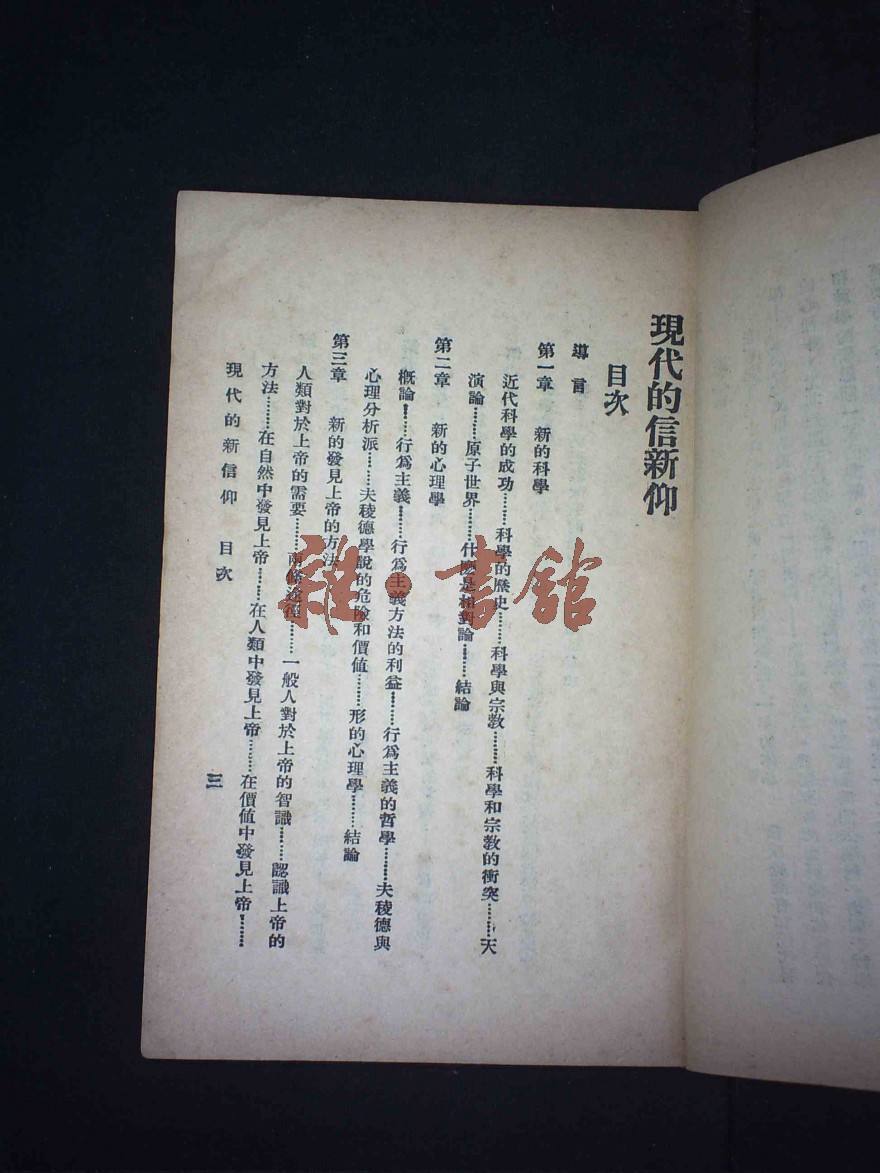 現代的信新仰
目次
導言
第一章 新的科學
近代科學的成功………科學的歷史………科學與宗教………科學和宗教的衝突………天
演論………原子世界………什麼是相對論………結論
第二章 新的心理學
概論………行爲主義………行爲主義方法的利益………行爲主義的哲學………夫稜德與
心理分析派………夫稜德學說的危險和價值………形的心理學………結論
第三章 新的發見上帝的方法
人類對於上帝的需要………兩條途徑………一般人對於上帝的智識………認識上帝的
方法………在自然中發見上帝………在人類中發見上帝………在價値中發見上帝………
現代的新信仰 目次
三
雜·書館